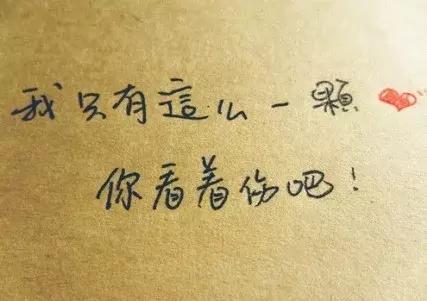 我只有這么一顆❤
你看着伤吧！